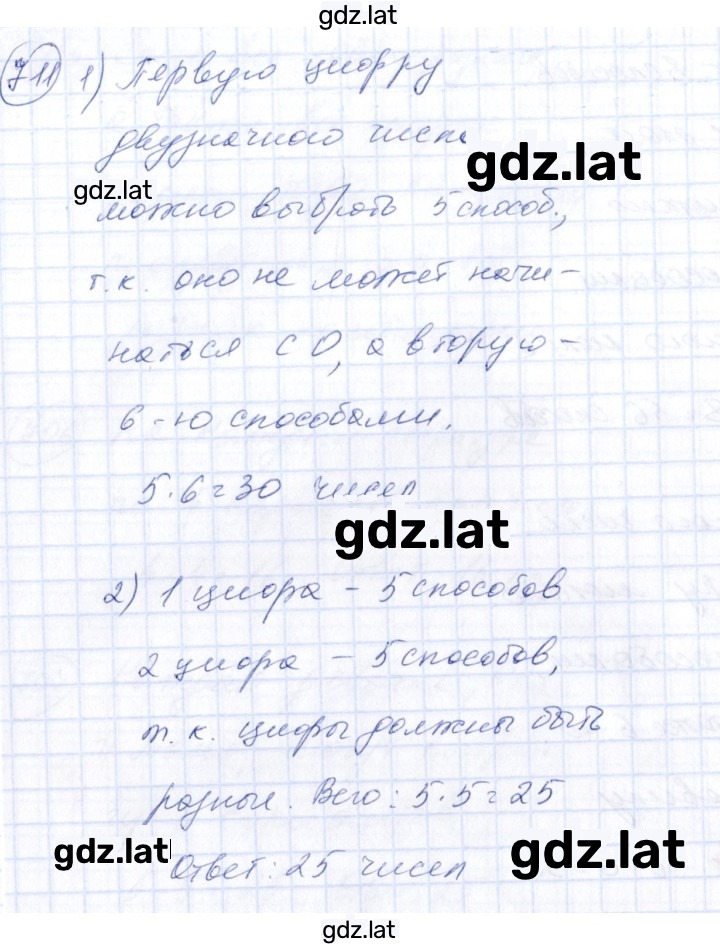 gdz.lat
711 1) Первую цифру
двузначного числа
gdz.lat
gdz.lat
можно выбрать 5 способ.,
т.к. оно не может начи-
наться с 0, а вторую -
6-ю способами.
5·6=30 чисел
gdz.lat
2) 1 цифра - 5 способов
2 цифра - 5 способов,
т.к. цифры должны быть
разные. Всего: 5·5=25
gdz.lat
gdz.lat
Ответ: 25 чисел
gdz.lat